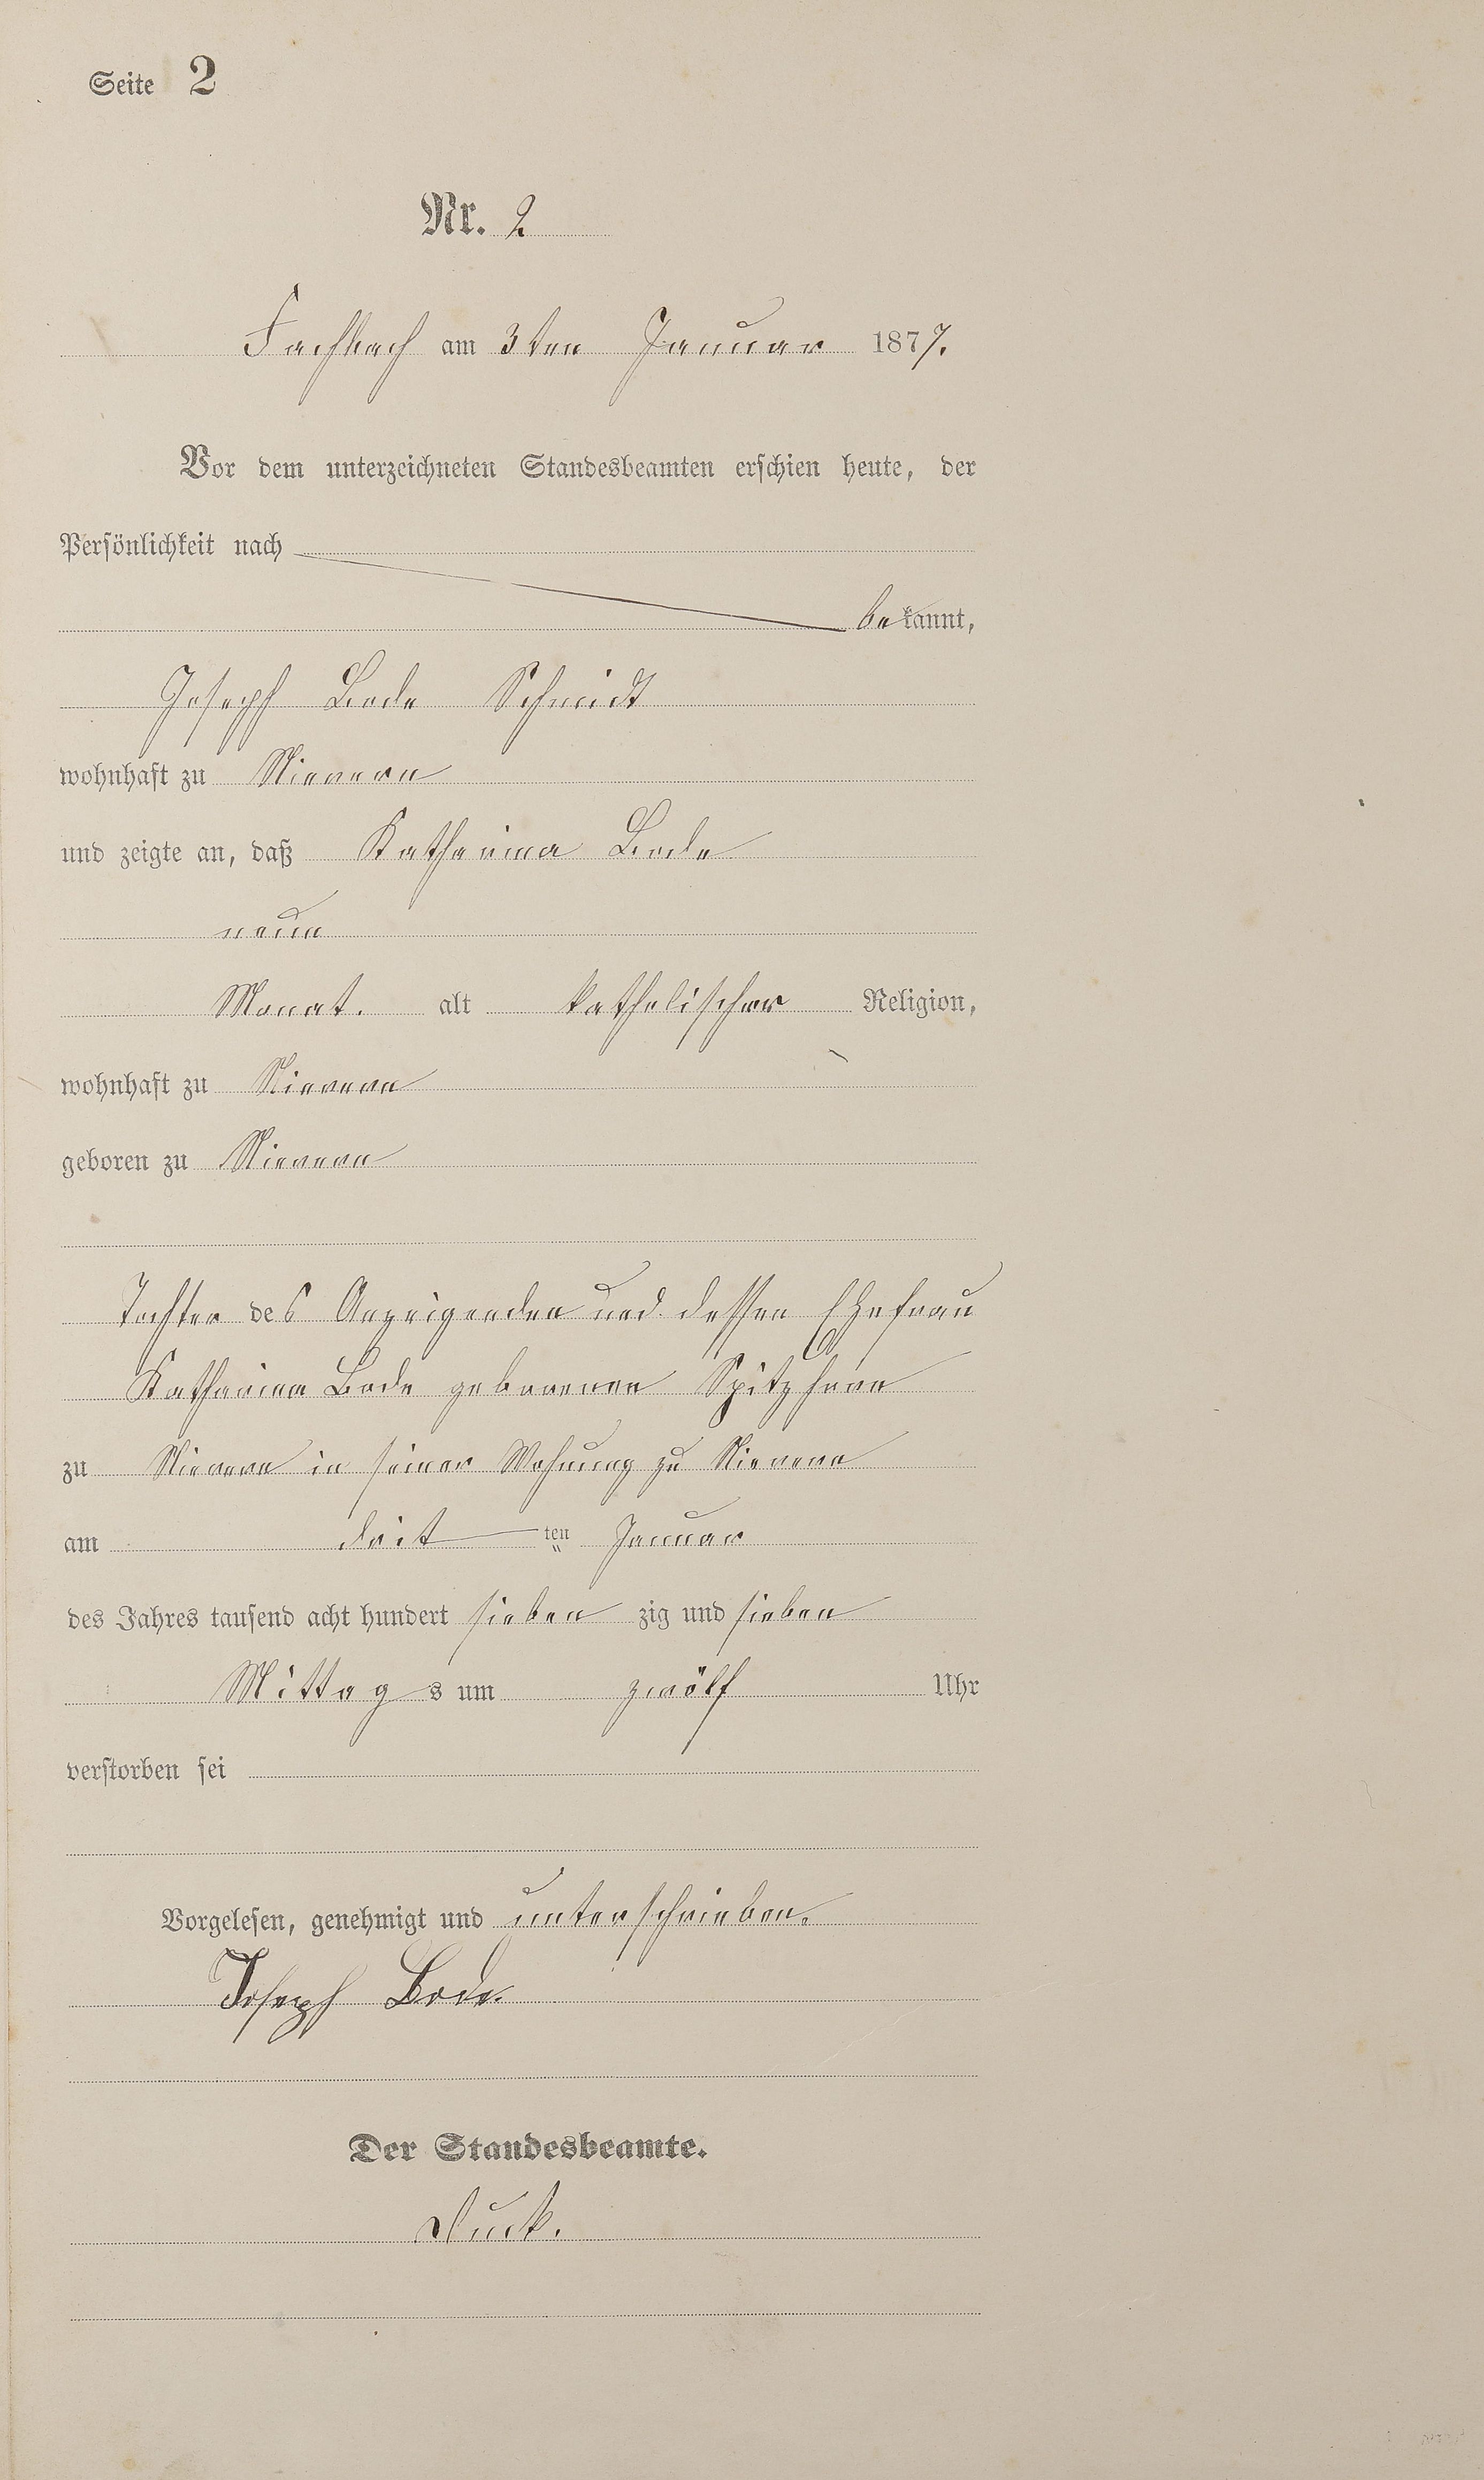 Seite 2
Nr. 2
Fachbach am 3ten Januar 1877.
Vor dem unterzeichneten Standesbeamten erschien heute, der
Persönlichkeit nach
bekannt,
Joseph Bode Schmidt
wohnhaft zu Nievern
und zeigte an, daß Katharina Bode
neun
Monat. alt katholischer Religion,
wohnhaft zu Nievern
geboren zu Nievern
Tochter des Anzeigenden und dessen Ehefrau
Katharina Bode geborenen Spitzhorn
zu Nievern in seiner Wohnung zu Nievern
am drit ten Januar
des Jahres tausend acht hundert sieben zig und sieben
Mittag s um zwölf Uhr
verstorben sei
Vorgelesen, genehmigt und unterschrieben.
Joseph Bode.
Der Standesbeamte.